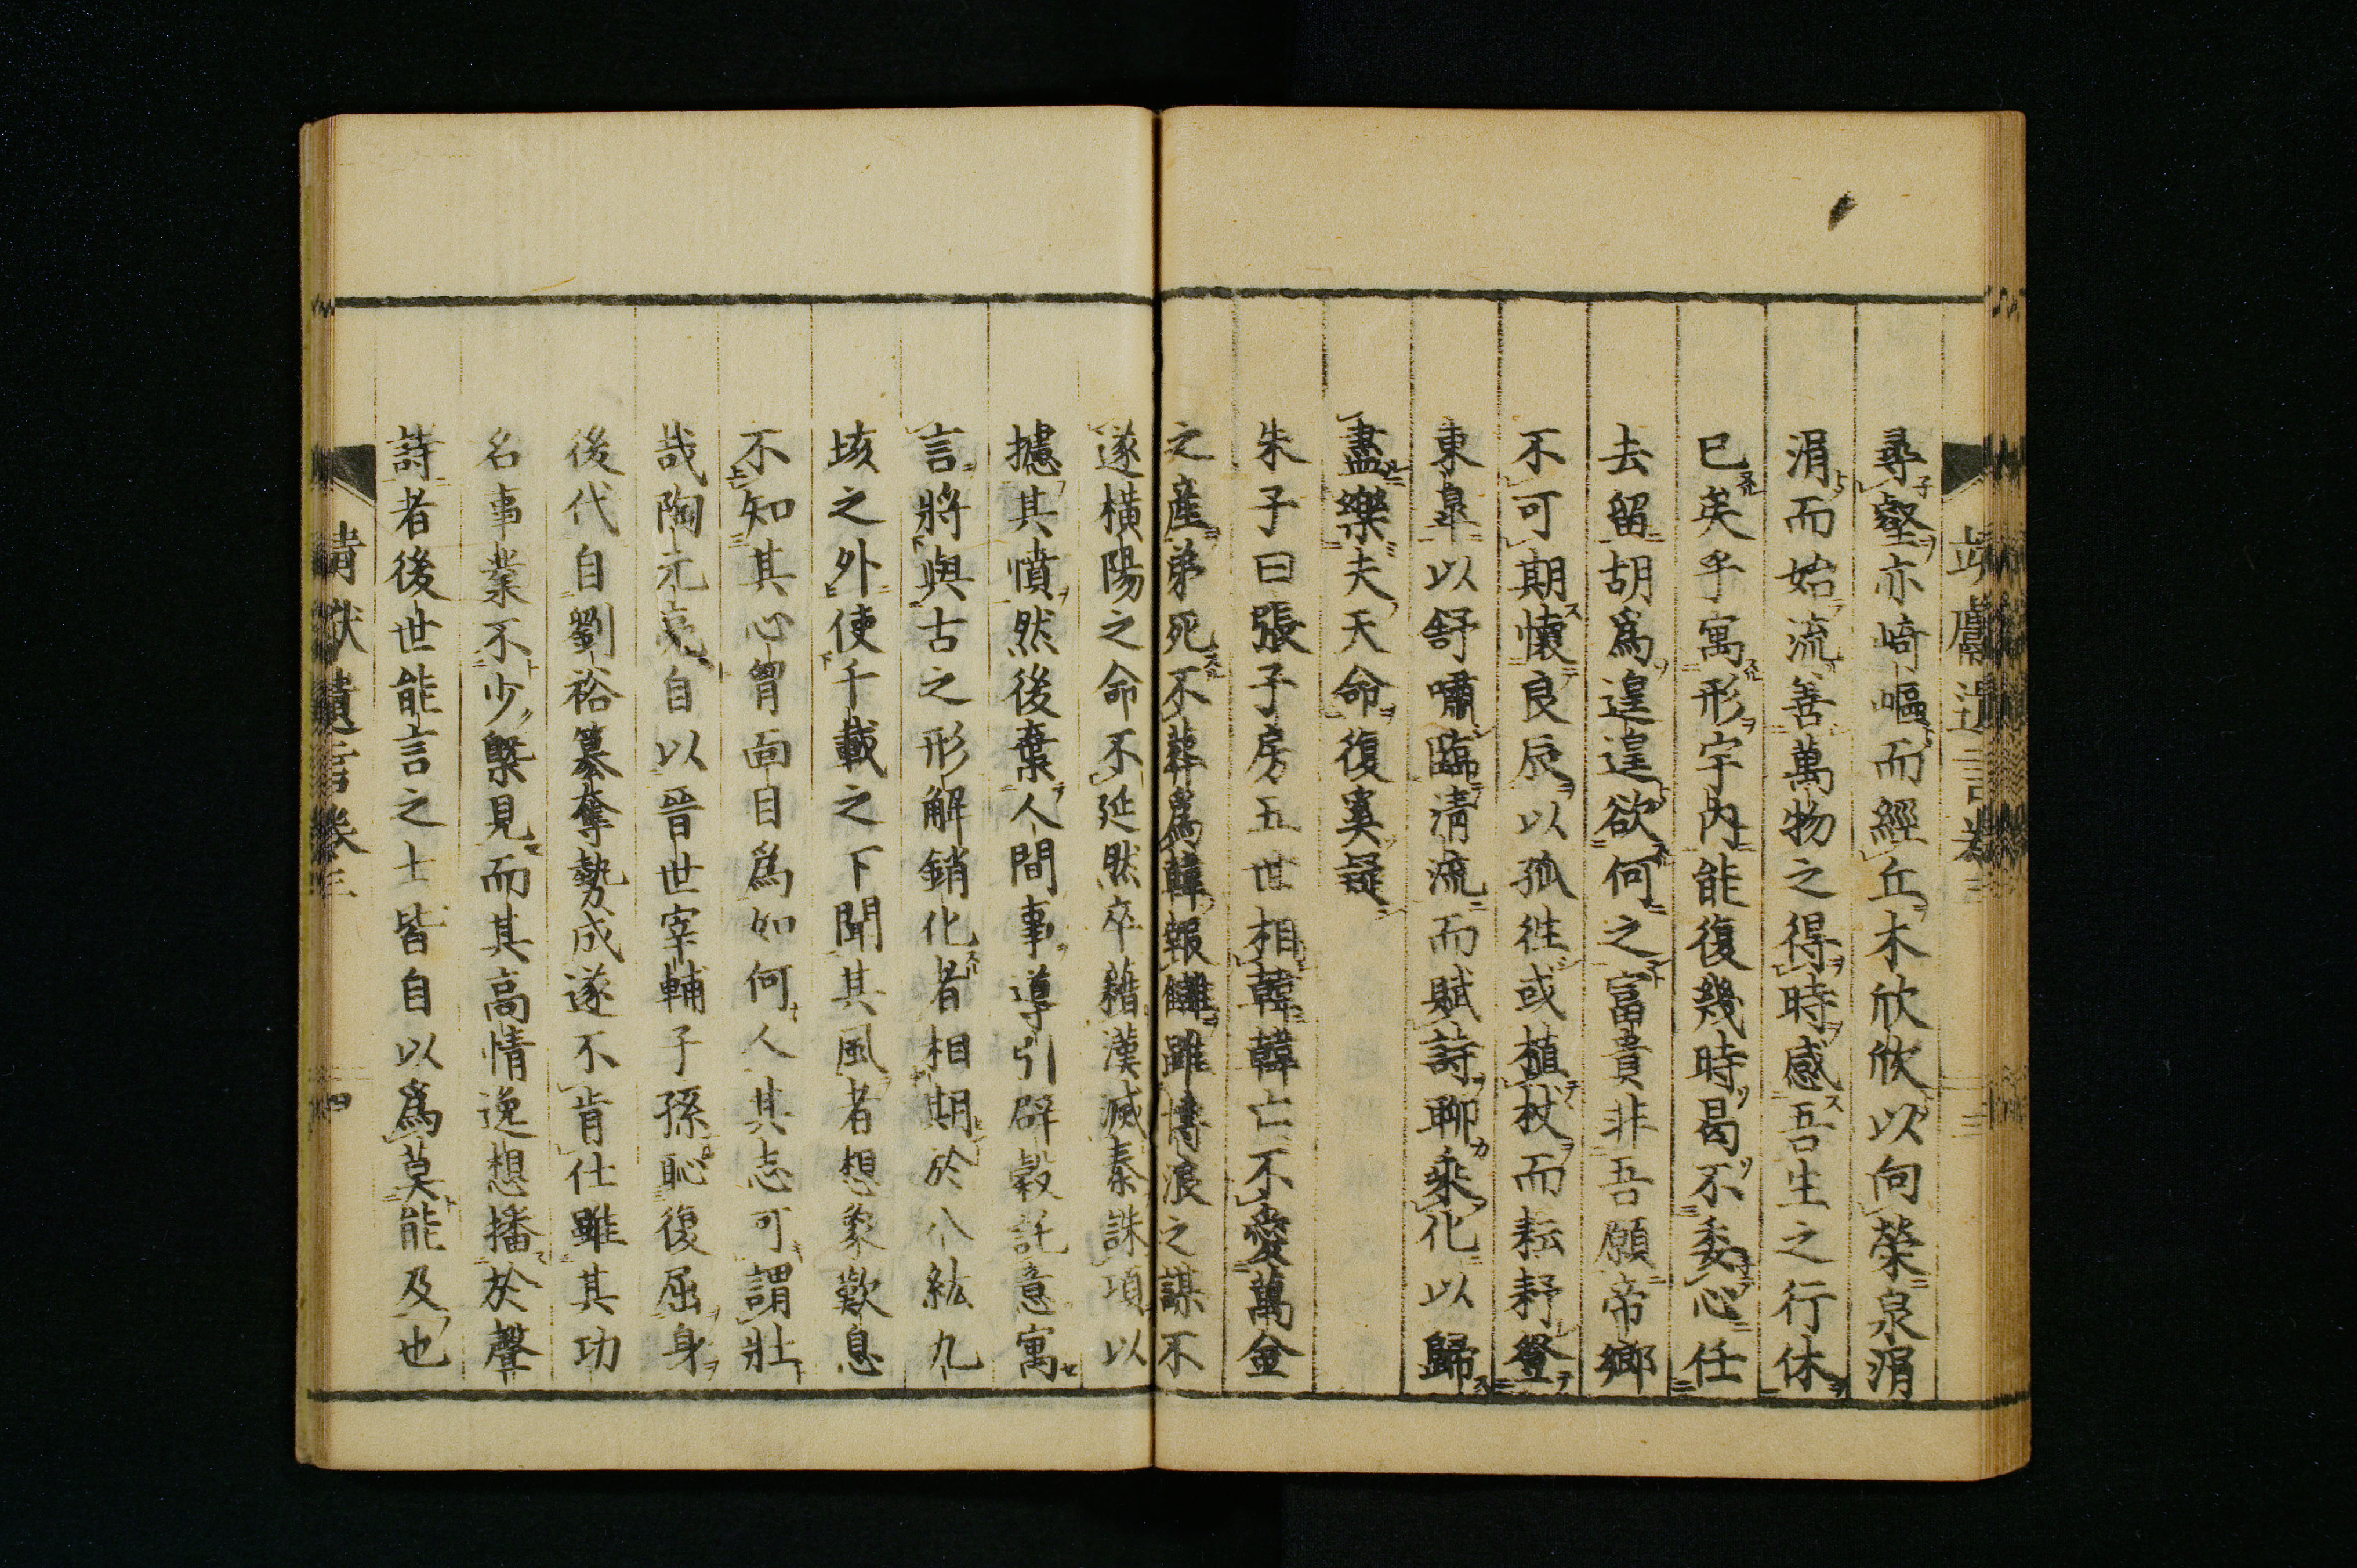 尋壑亦崎嶇而經丘木欣欣以向榮泉涓
涓而始流善萬物之得時感吾生之行休
已矣乎寓形宇內能復幾時曷不委心任
去留胡爲遑遑欲何之富貴非吾願帝鄉
不可期懷良辰以孤徃或植杖而耘耔登
東皐以舒嘯臨淸流而賦詩聊乘化以歸
盡樂夫天命復奚疑
朱子曰張子房五世相韓韓亡不愛萬金
之產弟死不葬爲韓報讎雖博浪之謀不
遂橫陽之命不延然卒藉漢滅秦誅項以
攄其憤然後棄人間事導引辟穀託意寓
言將與古之形解銷化者相期於八紘九
垓之外使千載之下聞其風者想象歎息
不知其心胷面目爲如何人其志可謂壯
哉陶元亮自以晉世宰輔子孫恥復屈身
後代自劉裕簒奪勢成遂不肯仕雖其功
名事業不少槩見而其高情逸想播於聲
詩者後世能言之士皆自以爲莫能及也
靖獻遺言卷三 四